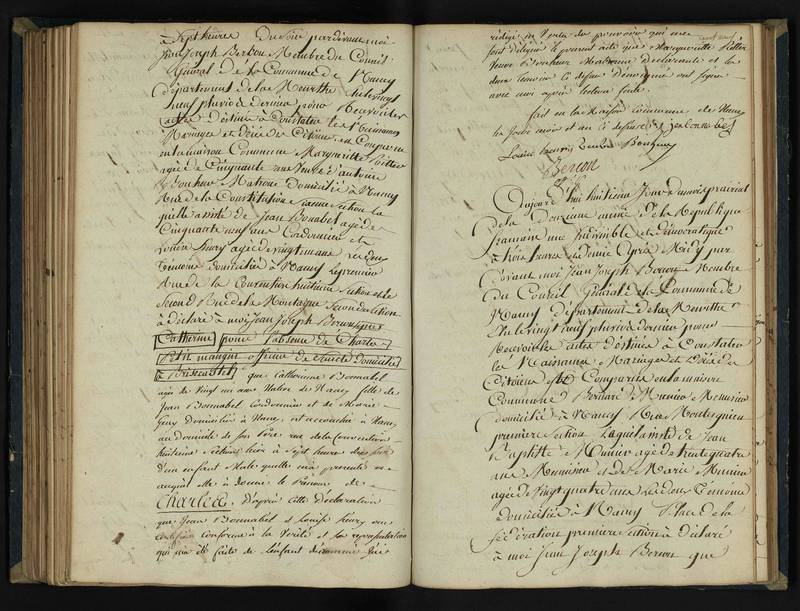 à Sept heures du Soir par devant moi
Jean Joseph Berson Membre du Conseil
Général de la Commune de Nancy
département de la Meurthe élu le vingt
neuf pluviôse dernier pour Recevoir les
actes destinés à Constater les Naissances
Mariages et Décès des Citoyens, est Comparue
en la maison Commune Marguerite
agée de Cinquante ans Veuve d'antoine
Bonheur Matrone domiciliée à Nancy
Rue de la Constitution Section la
quelle assistée de Jean Bonnabel agé de
Cinquante neuf ans Cordonnier et
Louise henry agée de vingt un ans
Témoins domiciliés à Nancy le premier
Rue de la Convention huitième Section et la
Seconde Rue de la Montagne Seconde Section
à déclaré à moi Jean Joseph Berson
Catherine pour l'absence de Charles
Petit mangin officier de Santé domicilié
à que Catherinne Bonnabel
agée de Vingt un ans Native de Nancy fille de
Jean Bonnabel Cordonnier et de Marie
domiciliés à Nancy, est accouchée à Nancy
au domicile de son Père rue de la Convention
huitième Section hier à Sept heures du soir
d'un enfant Male quelle m'a présenté et
auquel elle à donné le Prénom de
Charles. D'après cette déclaration
que Jean Bonnabel et Louise henry ont
certifiée conforme à la Vérité et la représentation
qui m'a été faite de l'enfant dénommé j'ai
rédigé en Vertu des pouvoirs qui me
sont délégués le présent acte que Marguerite
Veuve Bonheur Matrone déclarante et les
deux témoins ci dessus dénommés ont signé
avec moi après lecture faite.
fait en la Maison commune de Nancy
les jour mois et an ci dessus J. Bonnabel
Louise henry veuve Bonheur
Berson
Aujourd'hui huitième Jour du mois prairial
de la Douzième année de la République
française une Indivisible et démocratique
à trois heures et demie Après Midy par
devant moi Jean Joseph Berson Membre
du Conseil Général de la Commune de
Nancy Département de la Meurthe
élu le vingt neuf pluviôse dernier pour
Recevoir les actes destinés à Constater
les Naissances Mariages et Décès des
Citoyens est Comparu en la maison
Commune Bernard Munier Menuisier
domicilié à Nancy Rue Montesquieu
première Section laquel assisté de Jean
Baptiste Munier agé de trente quatre
ans Menuisier et de Marie Munier
agée de Vingt quatre ans les deux Témoins
domiciliés à Nancy Place de la
fédération première Section à déclaré
à moi Jean Joseph Berson que